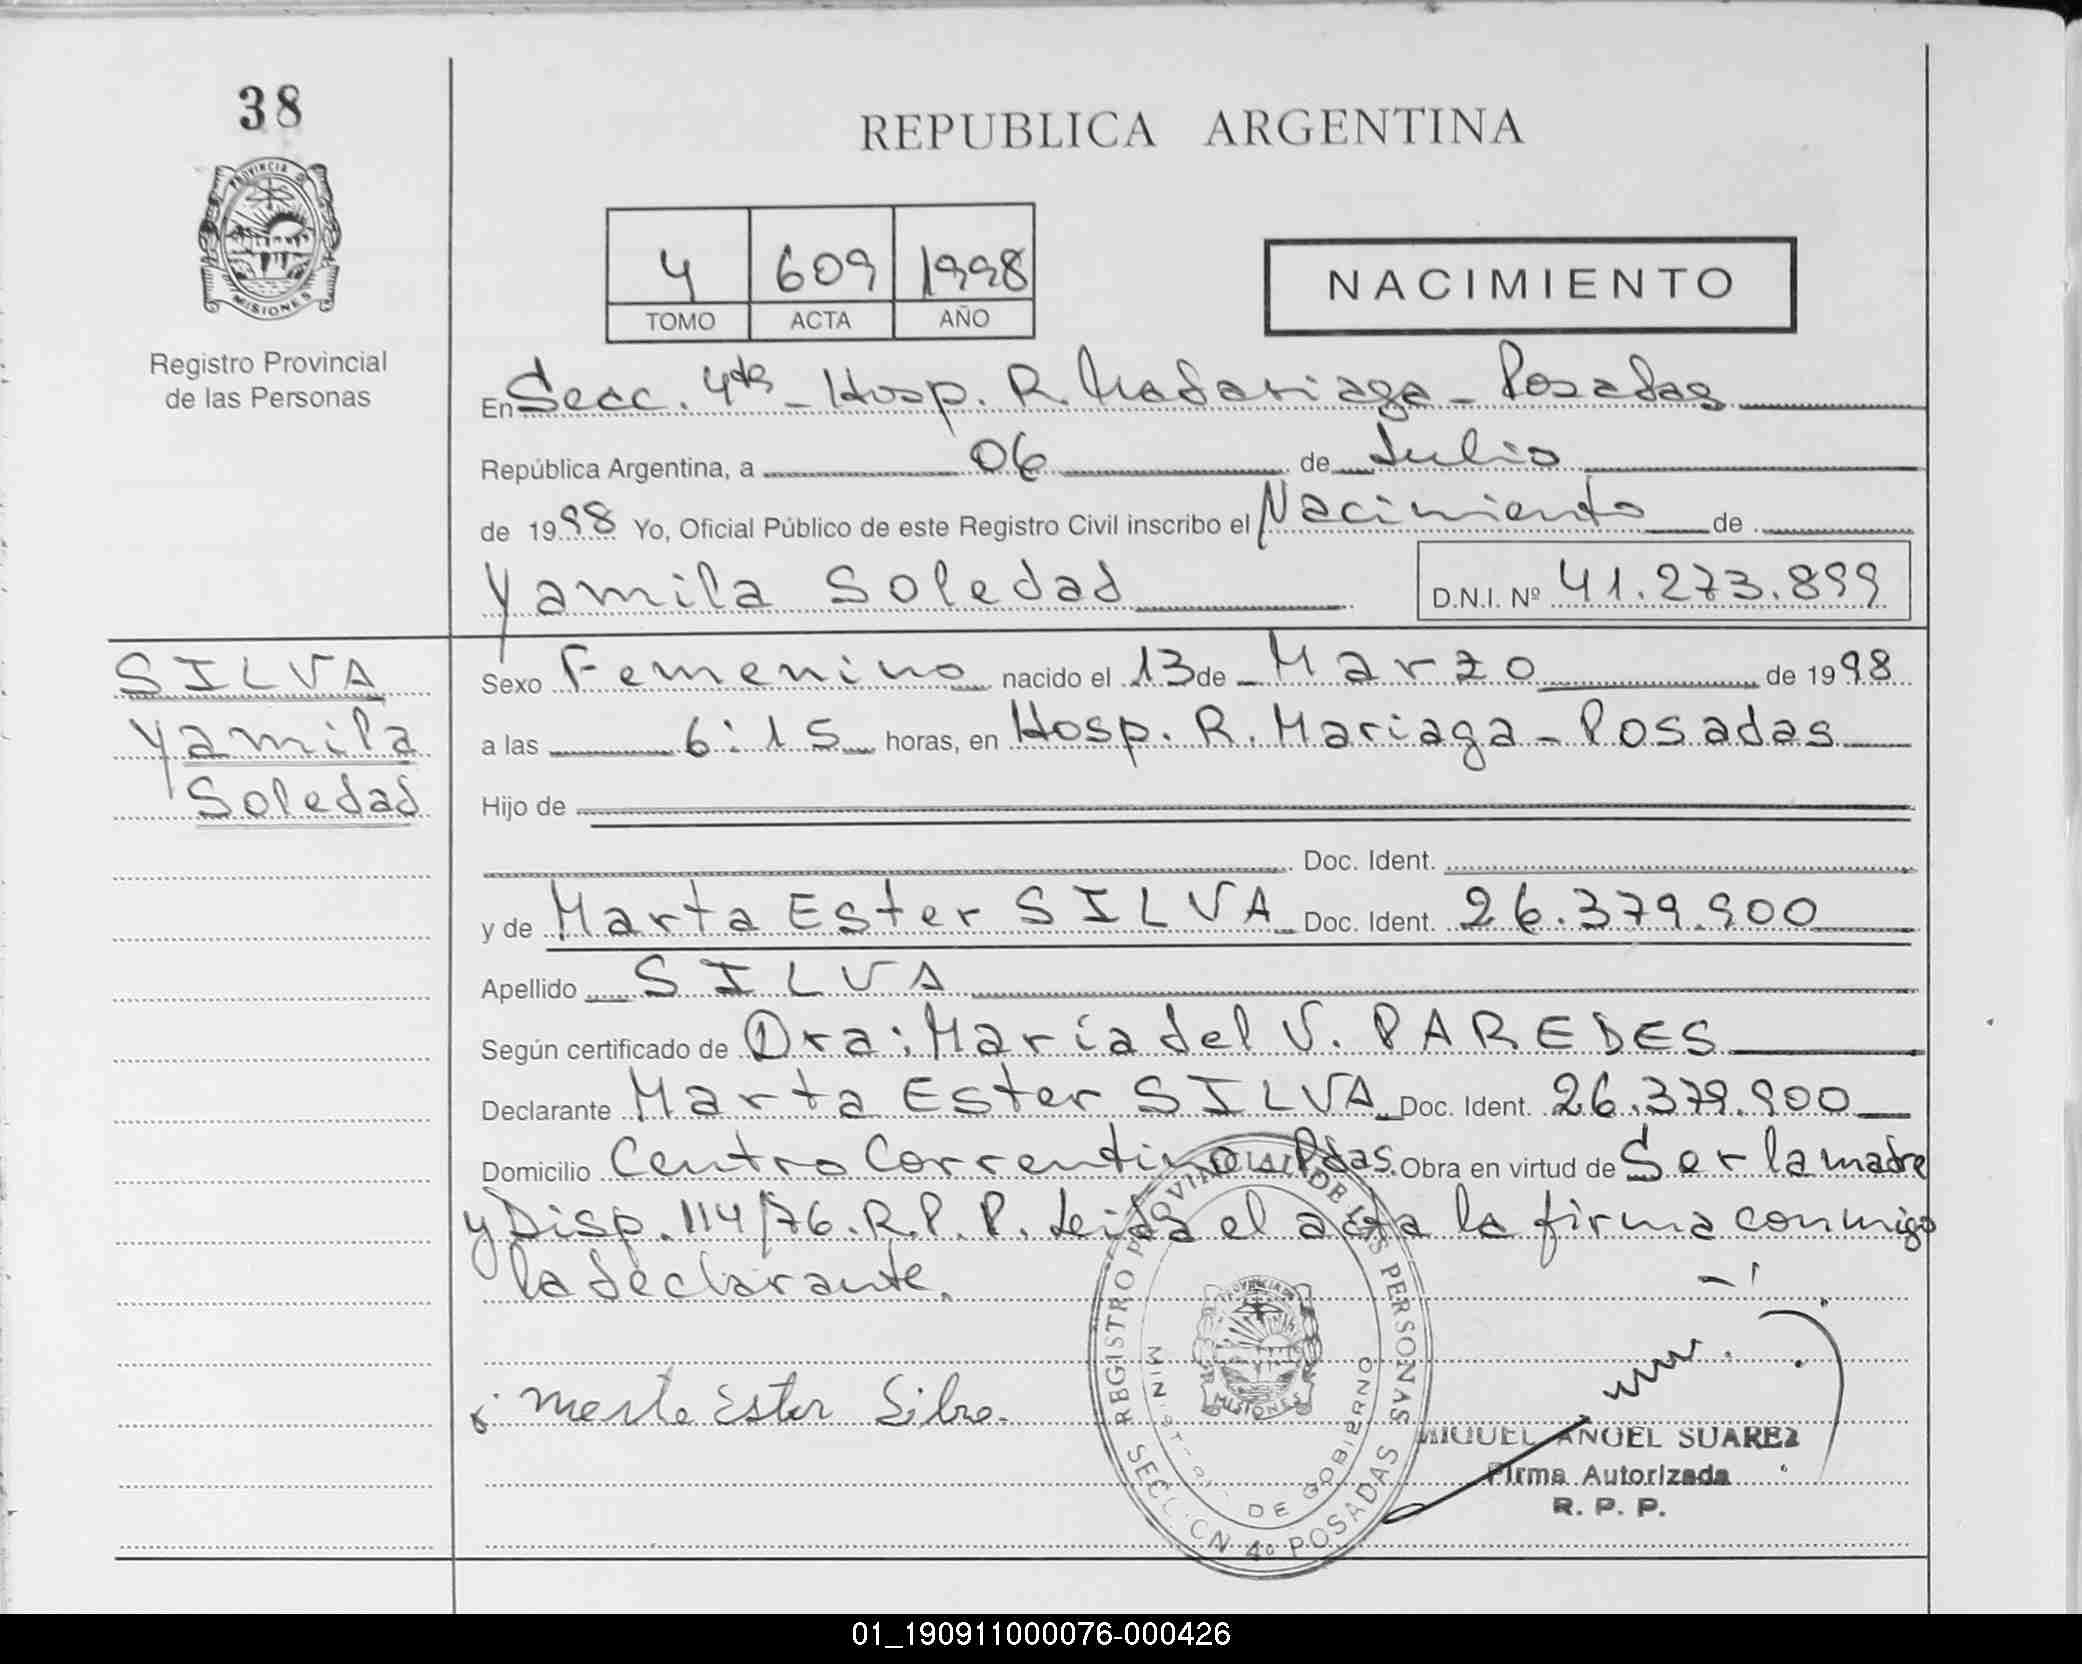 38
REPUBLICA ARGENTINA
PROVINCIA D
MISIONES
Registro Provincial
de las Personas
4 609 1998
TOMO ACTA AÑO
NACIMIENTO
En Secc. 4ta - Hosp. R. Madariaga - Posadas
República Argentina, a 06 de Julio
de 1998 Yo, Oficial Público de este Registro Civil inscribo el Nacimiento de
Yamila Soledad D.N.I. Nº 41.273.899
SILVA
Yamila
Soledad
Sexo Femenino nacido el 13 de Marzo de 1998
a las 6:15 horas, en Hosp. R. Mariaga - Posadas
Hijo de
Doc. Ident.
y de Marta Ester SILVA Doc. Ident. 26.379.900
Apellido SILVA
Según certificado de Dra: María del V. PAREDES
Declarante Marta Ester SILVA Doc. Ident. 26.379.900
Domicilio Centro Correntino - Pdas. Obra en virtud de Ser la madre
y Disp. 114/76. R.P.P. Leida el acta la firma conmigo
la declarante.
Marta Ester Silva.
REGISTRO PROVINCIAL DE LAS PERSONAS
MINISTERIO DE GOBIERNO
MISIONES
SECCION 4º POSADAS
MIGUEL ANGEL SUAREZ
Firma Autorizada
R. P. P.
01_190911000076-000426